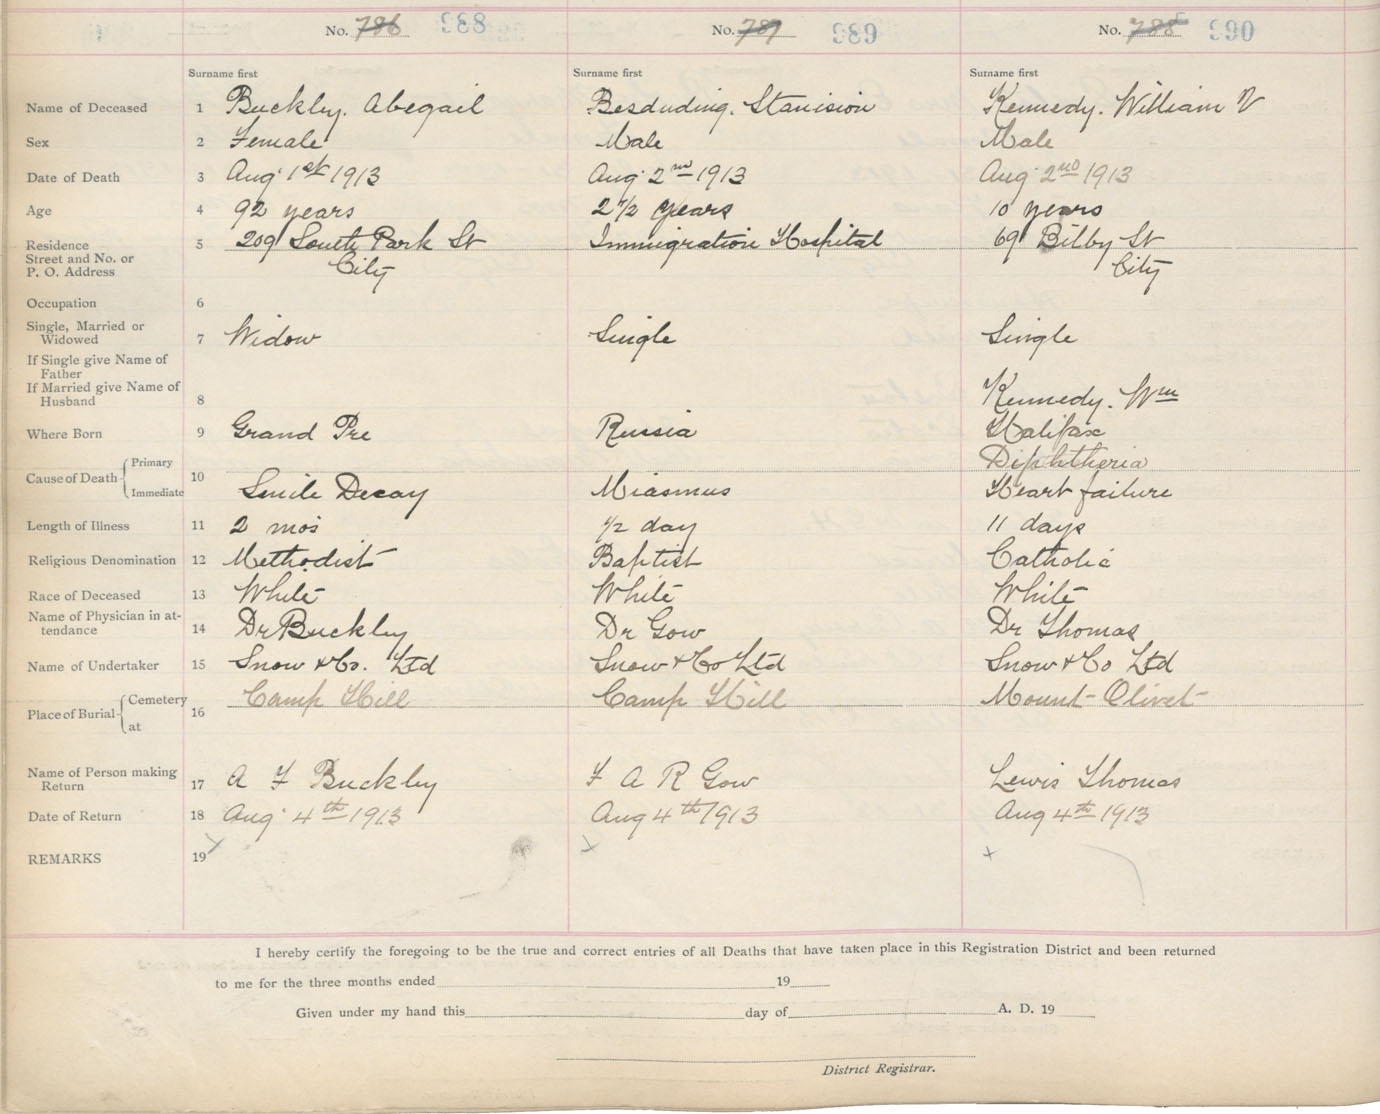 No. 786 838 No. 787 839 No. 788 990
Surname first Surname first Surname first
Name of Deceased 1 Buckley. Abegail Besduding. Stanision Kennedy. William V
Sex 2 Female Male Male
Date of Death 3 Aug 1st 1913 Aug 2nd 1913 Aug 2nd 1913
Age 4 92 years 2 1/2 years 10 years
Residence 5 209 South Park St Immigration Hospital 69 Bilby St
Street and No. or
P. O. Address City City
Occupation 6
Single, Married or
Widowed 7 Widow Single Single
If Single give Name of
Father
If Married give Name of
Husband 8 Kennedy. Wm
Where Born 9 Grand Pre Russia Halifax
Cause of Death Primary 10 Diphtheria
Immediate Senile Decay Miasmus Heart failure
Length of Illness 11 2 mos 1/2 day 11 days
Religious Denomination 12 Methodist Baptist Catholic
Race of Deceased 13 White White White
Name of Physician in at-
tendance 14 Dr Buckley Dr Gow Dr Thomas
Name of Undertaker 15 Snow & Co. Ltd Snow & Co Ltd Snow & Co Ltd
Place of Burial Cemetery 16 Camp Hill Camp Hill Mount Olivet
at
Name of Person making
Return 17 A F Buckley F A R Gow Lewis Thomas
Date of Return 18 Aug 4th 1913 Aug 4th 1913 Aug 4th 1913
REMARKS 19 x x x
I hereby certify the foregoing to be the true and correct entries of all Deaths that have taken place in this Registration District and been returned
to me for the three months ended 19
Given under my hand this day of A. D. 19
District Registrar.